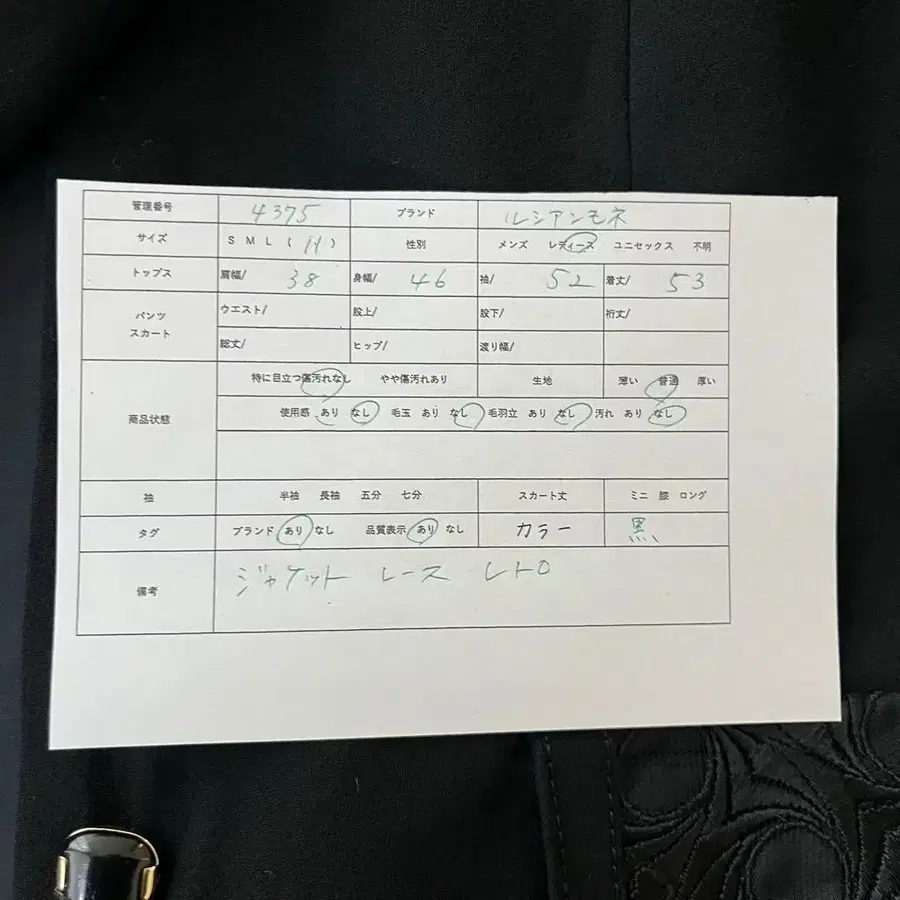 管理番号 4375 ブランド ルシアンモネ
サイズ S M L ( 11 ) 性別 メンズ レディース ユニセックス 不明
トップス 肩幅/ 38 身幅/ 46 袖/ 52 着丈/ 53
パンツ スカート ウエスト/ 股上/ 股下/ 裄丈/
総丈/ ヒップ/ 渡り幅/
商品状態 特に目立つ傷汚れなし やや傷汚れあり 生地 薄い 普通 厚い
使用感 あり なし 毛玉 あり なし 毛羽立 あり なし 汚れ あり なし
袖 半袖 長袖 五分 七分 スカート丈 ミニ 膝 ロング
タグ ブランド あり なし 品質表示 あり なし カラー 黒
備考 ジャケット レース レトロ